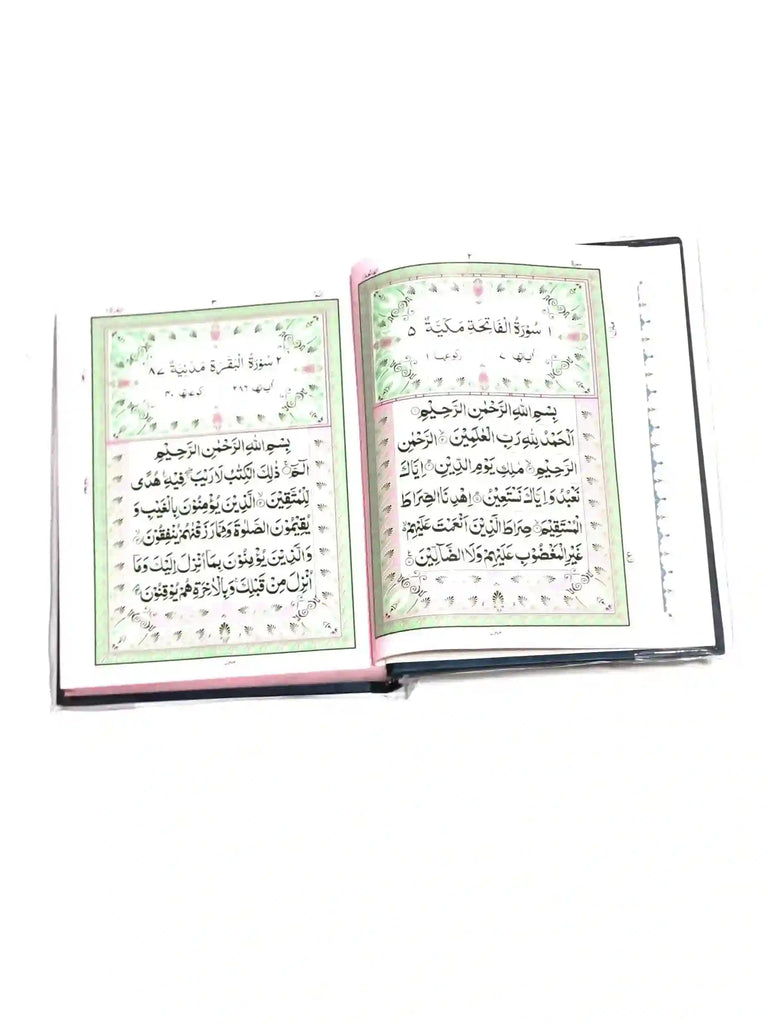 ٢
١ سُوْرَةُ الْفَاتِحَةِ مَكِّيَّةٌ ٥
اٰيَاتُهَا ٧ رُكُوْعُهَا ١
بِسْمِ اللّٰهِ الرَّحْمٰنِ الرَّحِيْمِ
اَلْحَمْدُ لِلّٰهِ رَبِّ الْعٰلَمِيْنَ الرَّحْمٰنِ
الرَّحِيْمِ مٰلِكِ يَوْمِ الدِّيْنِ اِيَّاكَ
نَعْبُدُ وَ اِيَّاكَ نَسْتَعِيْنُ اِهْدِنَا الصِّرَاطَ
الْمُسْتَقِيْمَ صِرَاطَ الَّذِيْنَ اَنْعَمْتَ عَلَيْهِمْ
غَيْرِ الْمَغْضُوْبِ عَلَيْهِمْ وَلَا الضَّآلِّيْنَ
ع
٣
٢ سُوْرَةُ الْبَقَرَةِ مَدَنِيَّةٌ ٨٧
اٰيَاتُهَا ٢٨٦ رُكُوْعَاتُهَا ٤٠
بِسْمِ اللّٰهِ الرَّحْمٰنِ الرَّحِيْمِ
الٓمّٓ ذٰلِكَ الْكِتٰبُ لَا رَيْبَ فِيْهِ هُدًى
لِّلْمُتَّقِيْنَ الَّذِيْنَ يُؤْمِنُوْنَ بِالْغَيْبِ وَ
يُقِيْمُوْنَ الصَّلٰوةَ وَمِمَّا رَزَقْنٰهُمْ يُنْفِقُوْنَ
وَالَّذِيْنَ يُؤْمِنُوْنَ بِمَآ اُنْزِلَ اِلَيْكَ وَمَآ
اُنْزِلَ مِنْ قَبْلِكَ وَبِالْاٰخِرَةِ هُمْ يُوْقِنُوْنَ